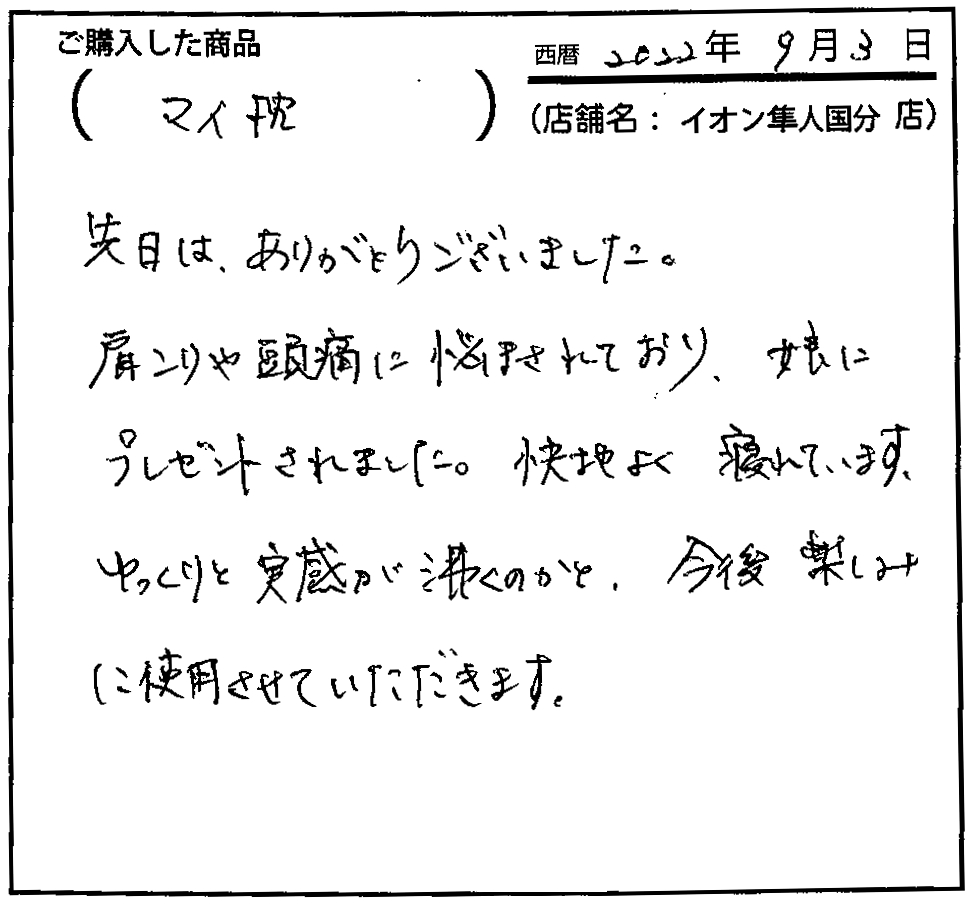 ご購入した商品
西暦 2022年 9月3日
(マイ枕)
(店舗名：イオン隼人国分 店)
先日は、ありがとうございました。
肩こりや頭痛に悩まされており、娘に
プレゼントされました。快地よく 寝れています、
ゆっくりと実感が沸くのかと、今後楽しみ
に使用させていただきます。